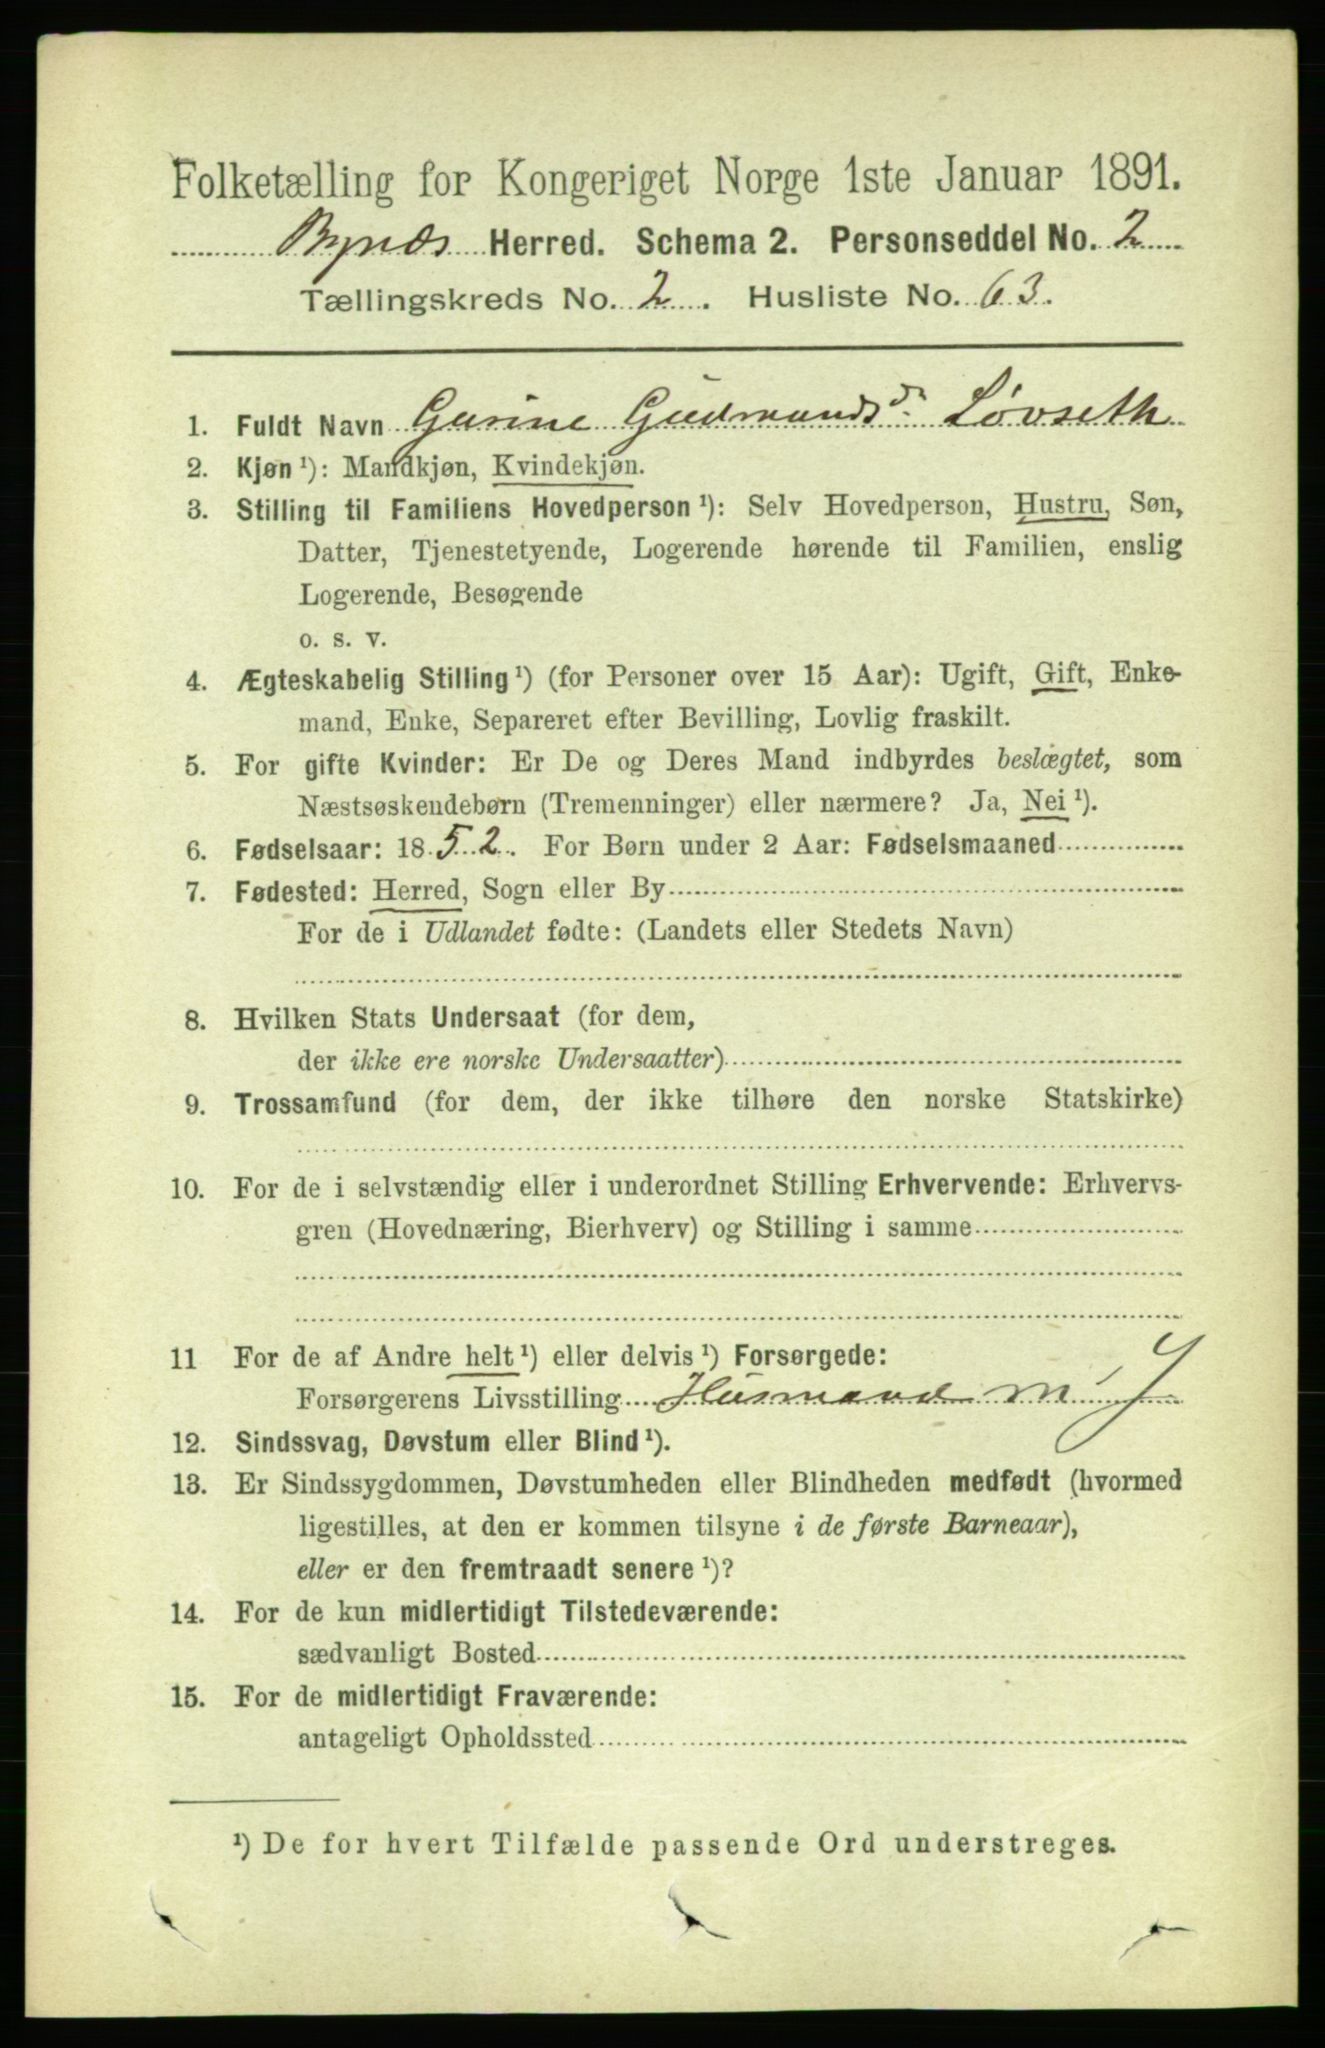 Folketælling for Kongeriget Norge 1ste Januar 1891.
Bynæs Herred. Schema 2. Personseddel No. 2
Tællingskreds No. 2. Husliste No. 63.
1. Fuldt Navn Gurine Gudmundsd. Løvseth
2. Kjøn ¹): Mandkjøn, Kvindekjøn.
3. Stilling til Familiens Hovedperson ¹): Selv Hovedperson, Hustru, Søn,
Datter, Tjenestetyende, Logerende hørende til Familien, enslig
Logerende, Besøgende
o. s. v.
4. Ægteskabelig Stilling ¹) (for Personer over 15 Aar): Ugift, Gift, Enke-
mand, Enke, Separeret efter Bevilling, Lovlig fraskilt.
5. For gifte Kvinder: Er De og Deres Mand indbyrdes beslægtet, som
Næstsøskendebørn (Tremenninger) eller nærmere? Ja, Nei ¹).
6. Fødselsaar: 1852. For Børn under 2 Aar: Fødselsmaaned
7. Fødested: Herred, Sogn eller By
For de i Udlandet fødte: (Landets eller Stedets Navn)
8. Hvilken Stats Undersaat (for dem,
der ikke ere norske Undersaatter)
9. Trossamfund (for dem, der ikke tilhøre den norske Statskirke)
10. For de i selvstændig eller i underordnet Stilling Erhvervende: Erhvervs-
gren (Hovednæring, Bierhverv) og Stilling i samme
11 For de af Andre helt ¹) eller delvis ¹) Forsørgede:
Forsørgerens Livsstilling Husmand m. J
12. Sindssvag, Døvstum eller Blind ¹).
13. Er Sindssygdommen, Døvstumheden eller Blindheden medfødt (hvormed
ligestilles, at den er kommen tilsyne i de første Barneaar),
eller er den fremtraadt senere ¹)?
14. For de kun midlertidigt Tilstedeværende:
sædvanligt Bosted
15. For de midlertidigt Fraværende:
antageligt Opholdssted
¹) De for hvert Tilfælde passende Ord understreges.